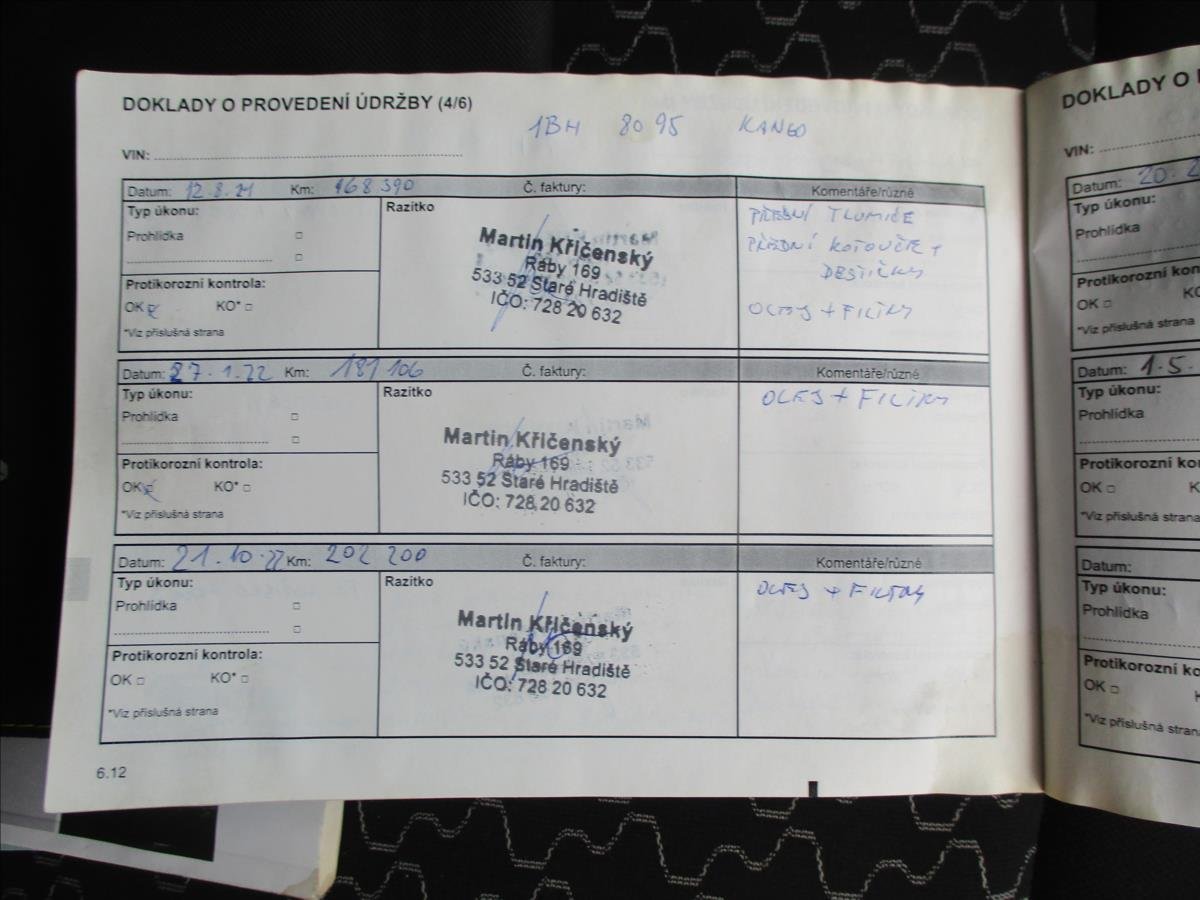 DOKLADY O PROVEDENÍ ÚDRŽBY (4/6)
1BH 8095 KANGO
VIN:
Datum: 12.8.21 Km: 168 390 Č. faktury: Komentáře/různé
Typ úkonu: Razítko
Prohlídka
Protikorozní kontrola:
OK KO*
*Viz příslušná strana
Martin Křičenský
Ráby 169
533 52 Staré Hradiště
IČO: 728 20 632
PŘEDNÍ TLUMIČE
PŘEDNÍ KOTOUČE +
DESTIČKY
OLEJ + FILTRY
Datum: 27.1.22 Km: 181 106 Č. faktury: Komentáře/různé
Typ úkonu: Razítko
Prohlídka
Protikorozní kontrola:
OK KO*
*Viz příslušná strana
Martin Křičenský
Ráby 169
533 52 Staré Hradiště
IČO: 728 20 632
OLEJ + FILTRY
Datum: 21.10.22 Km: 202 200 Č. faktury: Komentáře/různé
Typ úkonu: Razítko
Prohlídka
Protikorozní kontrola:
OK KO*
*Viz příslušná strana
Martin Křičenský
Ráby 169
533 52 Staré Hradiště
IČO: 728 20 632
OLEJ + FILTRY
6.12
DOKLADY O
VIN:
Datum: 20.
Typ úkonu:
Prohlídka
Protikorozní
OK
*Viz příslušná strana
Datum: 1.5.
Typ úkonu:
Prohlídka
Protikorozní
OK
*Viz příslušná strana
Datum:
Typ úkonu:
Prohlídka
Protikorozní
OK
*Viz příslušná